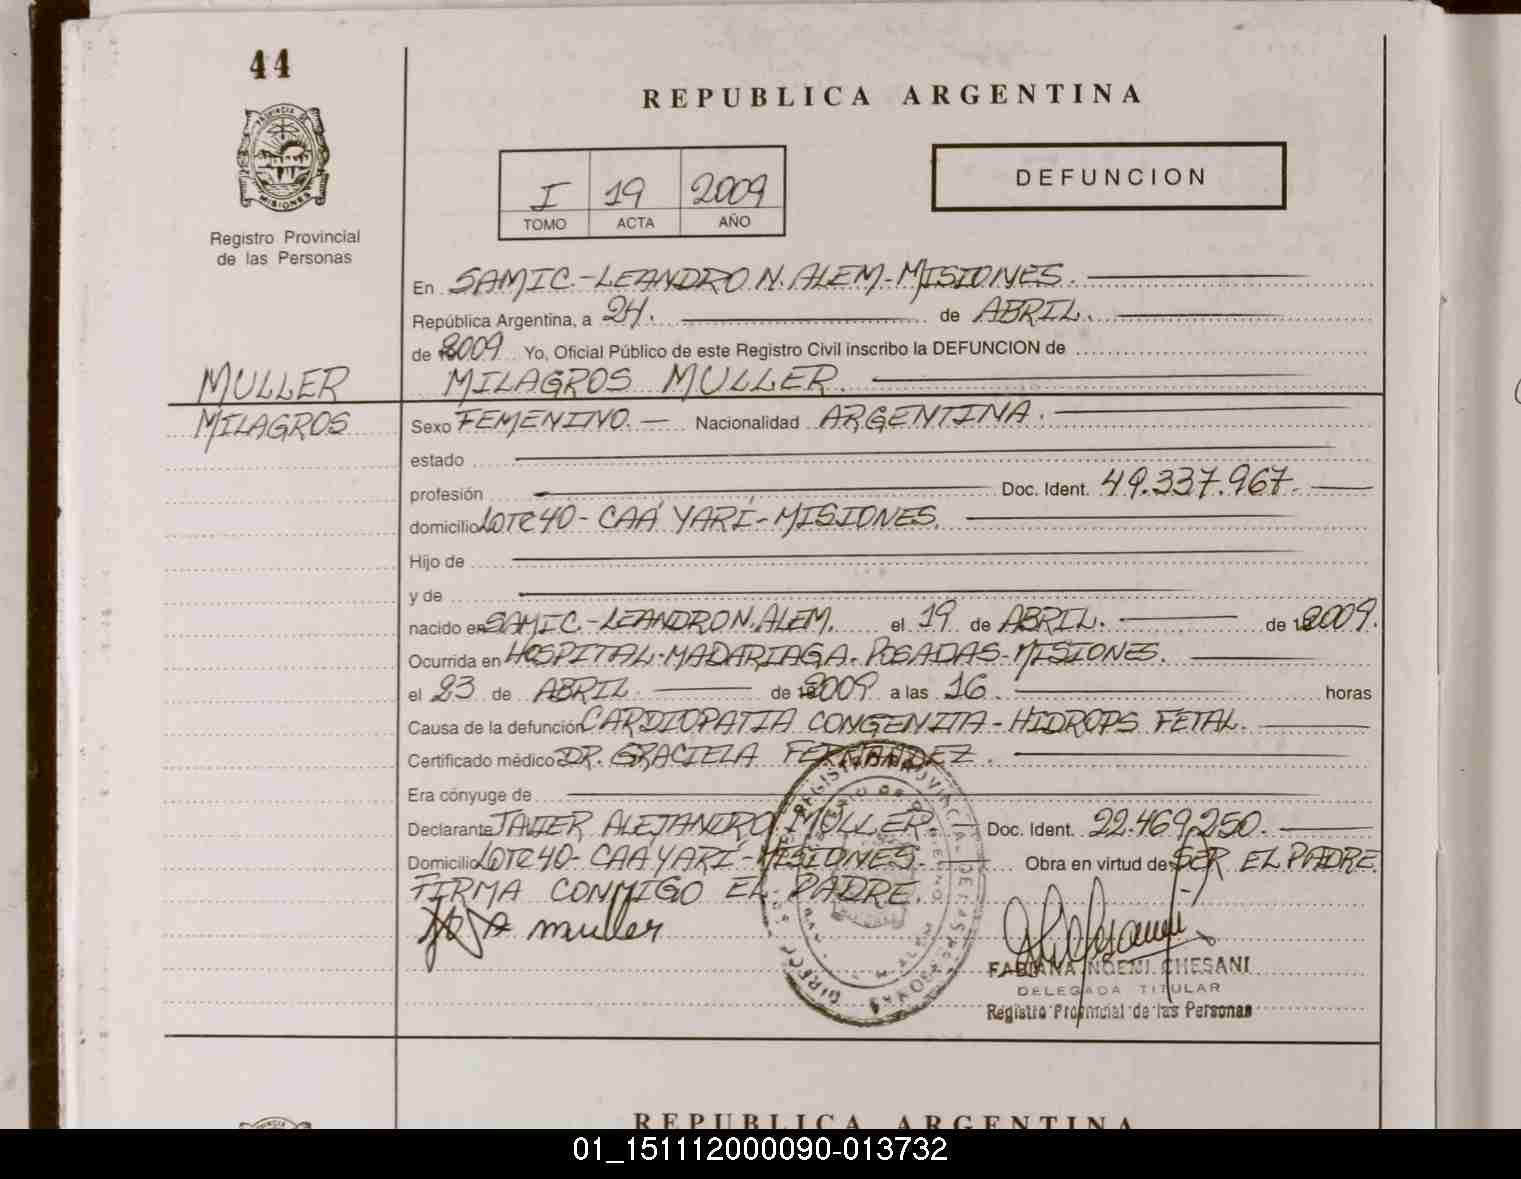 44
REPUBLICA ARGENTINA
PROVINCIA DE
MISIONES
Registro Provincial
de las Personas
DEFUNCION
I 19 2009
TOMO ACTA AÑO
En SAMIC.-LEANDRO N. ALEM-MISIONES.
República Argentina, a 24. de ABRIL.
de 2009 Yo, Oficial Público de este Registro Civil inscribo la DEFUNCION de
MULLER MILAGROS MULLER.
MILAGROS
Sexo FEMENINO. Nacionalidad ARGENTINA.
estado
profesión Doc. Ident. 49.337.967.
domicilio LOTE 40 - CAÁ YARÍ - MISIONES.
Hijo de
y de
nacido en SAMIC.-LEANDRO N. ALEM. el 19 de ABRIL. de 2009.
Ocurrida en HOSPITAL-MADARIAGA. POSADAS-MISIONES.
el 23 de ABRIL. de 2009 a las 16 horas
Causa de la defunción CARDIOPATIA CONGENITA - HIDROPS FETAL.
Certificado médico DR. GRACIELA FERNANDEZ.
Era cónyuge de
Declarante JAVIER ALEJANDRO MULLER. Doc. Ident. 22.469.250.
Domicilio LOTE 40- CAÁ YARÍ - MISIONES. Obra en virtud de SER EL PADRE.
FIRMA CONMIGO EL PADRE.
muller
FABIANA NOEMI CHESANI
DELEGADA TITULAR
Registro Provincial de las Personas
REPUBLICA ARGENTINA
01_151112000090-013732